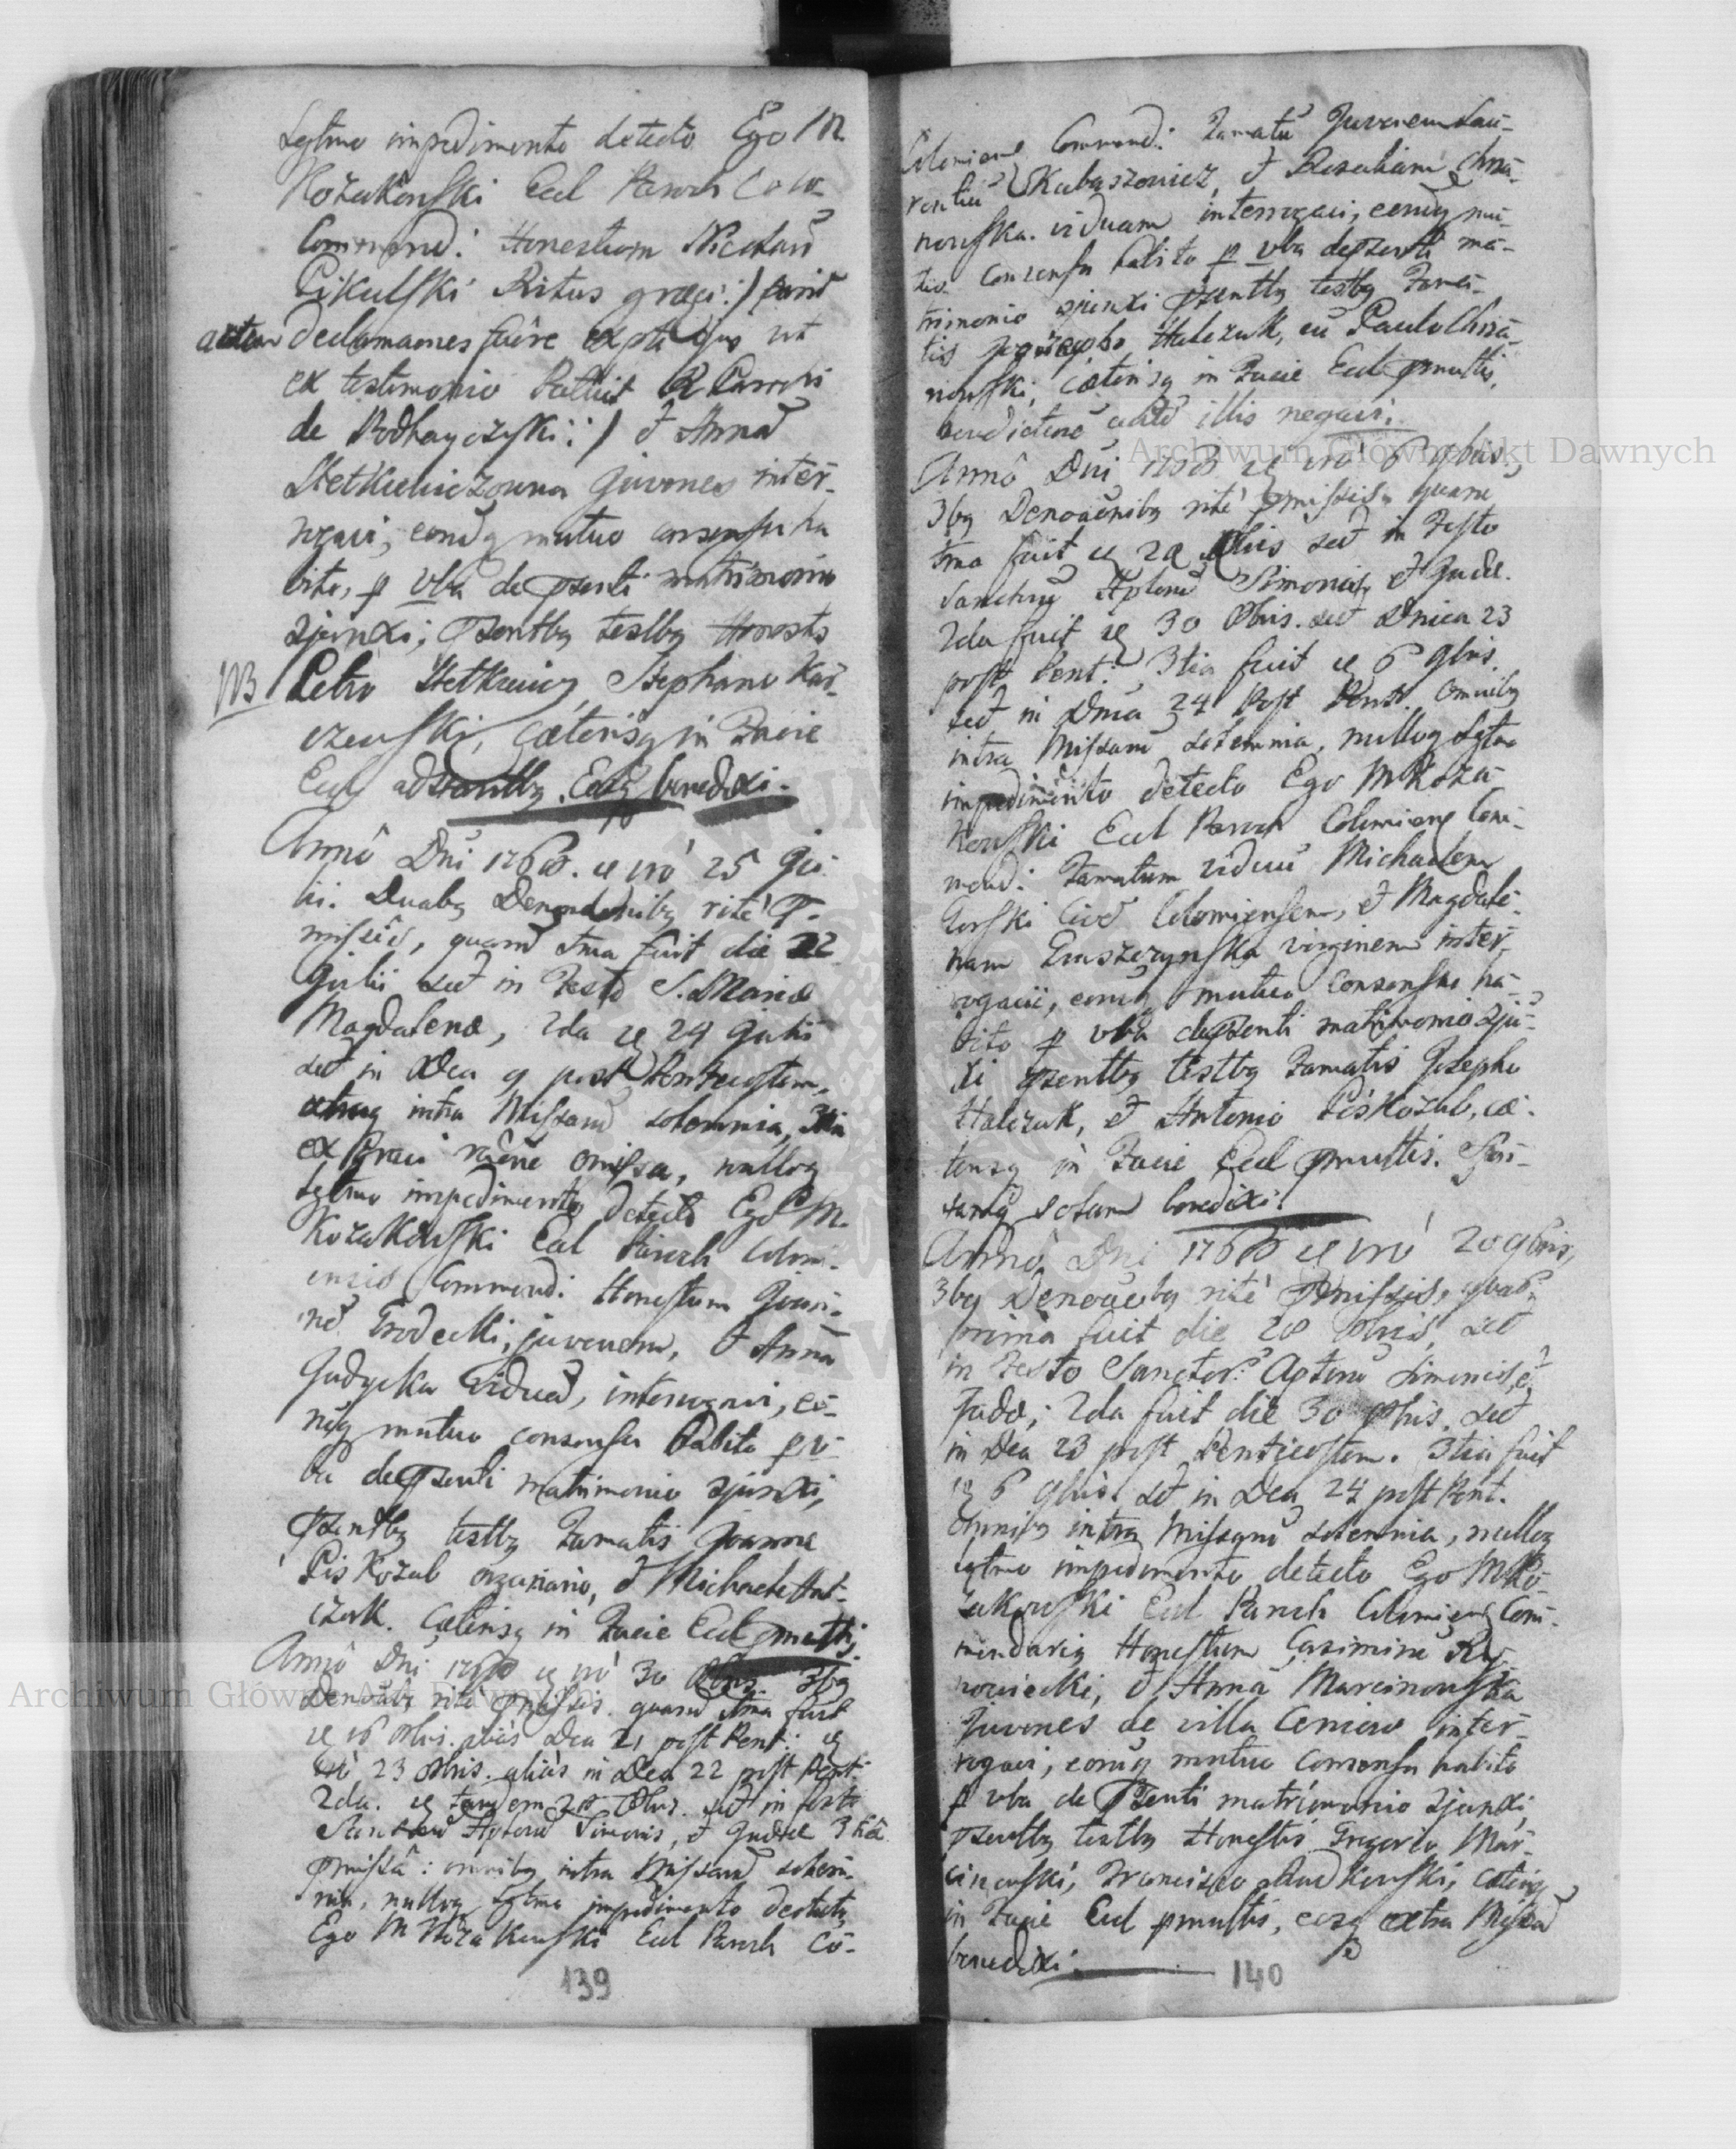 Lgtmo impedimento detecto Ego M
Kozakowski Eccl Paroch Colo-
Commend: Honestum Nicolaū
Pikulski Ritus græci :/
declamaones fuere ex pte ejus ut
ex testimonio Patuit R Parochi
de Podhayczyki :/ et Annā
Stetkiewiczowna juvenes inter-
rogavi, eorūq mutuo consensu ha
bito, p vba de psenti matrimonio
zjunxi; psentbq testbq Honests
NB Petro Stetkiewicz, Stephano Kar-
czewski, cæterisq in Facie
Eccl adstantbq. Eosq benedixi.
Annô Dni 1768. ie vrô 25 Ju
lii. Duabq Denonaonibq ritè p-
missis, quarū 1ma fuit die 22
Julii sed in Festo S. Mariæ
Magdalenæ, 2da ie 24 Julii
sed in Dca 9 post Pentecostem,
utraq intra Missarū solemnia, 3tia
ex gravi raone omissa, nulloq
lgtmo impedimento detecto Ego M.
Kozakowski Eccl Paroch Colomi-
ensis Commend: Honestum Joan-
nē Grodecki, juvenem, et Annā
Gudzycka viduā, interrogavi, eo-
rūq mutuo consensu habito p v-
ba de psenti matrimonio zjunxi,
psentbq testbq Famatis Joanne
Piskozub organario, et Michaele Hal-
czuk. Cæterisq in Facie Eccl pmultis.
Annô Dni 1768 ie vrô 30 8bris. 3bq
Denōabq ritè pmissis. quarū 1ma fuit
ie 16 8bris. aliàs Dca 21 post Pent: ie
vrò 23 8bris. aliàs in Dca 22 post Pent:
2da. ie tandem 28 8bris. sed in festo
Sanctorū Aptorū Simonis, et Judæ 3tia
pmissâ: omnibq intra Missarū solem-
nia, nulloq lgtmo impedimento detecto
Ego M Kozakowski Eccl Paroch Co-
139
lomiens Commend: Famatū Juvenem Lau-
rentiū Kubaszowicz, et Rosaliam Chrza-
nowska. viduam interrogavi, eorūq mu-
tuo consensu habito p vba de psenti ma-
trimonio zjunxi psentbq testbq Fama-
tis Josepho Halczuk, et Paulo Chrza-
nowski, Cæterisq in Facie Eccl pmultis,
Annô Dni 1768 ie vrô 6 9bris.,
3bq Denoaōnibq ritè pmissis, quarū
1ma fuit ie 28 8bris sed in Festo
Sanctorū Aptorū Simonis, et Judæ.
2da fuit ie 30 8bris. sed Dnica 23
post Pent: 3tia fuit ie 6 9bris.
sed in Dnca 24 Post Pent. Omnibq
intra Missarū solemnia, nulloq lgtmo
impedimento detecto Ego M Koza-
kowski Eccl Paroch Colomiens Com-
mend: Famatum viduū Michaelem
Gorski Civē Colomiensem, et Magdale-
nam Gruszczynska virginem inter-
rogavi, eorūq mutuo Consensu ha-
bito p vba de psenti matrimonio zjū-
xi psentbq testbq Famatis Josepho
Halczuk, et Antonio Piskozub, cæ-
terisq in Facie Eccl pmultis. Spon-
samq solam benedixi.
Annô Dni 1768 ie vrô 20 9bris,
3bq Denoaebq ritè pmissis, quarū
prima fuit die 28 8bris, sed
in Festo Sanctor: Aptorū Simonis, et
Judæ; 2da fuit die 30 8bris. sed
in Dca 23 post Pentecostem. 3tia fuit
ie 6 9bris. sed in Dca 24 post Pent.
Omnibq intra Missarū solemnia, nulloq
lgtmo impedimento detecto Ego M Ko-
zakowski Eccl Paroch Colomiens Com-
mendariq Honestum Casimirū
et Annā Marcinowska
Juvenes de villa inter-
rogavi, eorūq mutuo consensu habito
p vba de psenti matrimonio zjunxi,
psentbq testbq Honestis Gregorio Mar-
cinowski, Francisco cæterisq
in Facie Eccl pmultis, eosq extra Missā
benedixi.
140
Archiwum Główne Akt Dawnych
Archiwum Główne Akt Dawnych